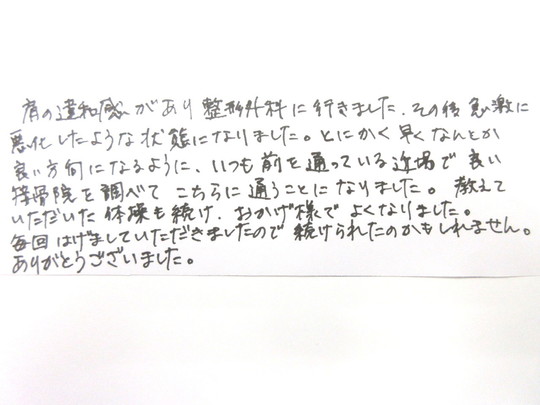 肩の違和感があり整形外科に行きました。その後急激に
悪化したような状態になりました。とにかく早くなんとか
良い方向になるように、いつも前を通っている近場で良い
接骨院を調べてこちらに通うことになりました。教えて
いただいた体操も続け、おかげ様でよくなりました。
毎回はげましていただきましたので続けられたのかもしれません。
ありがとうございました。